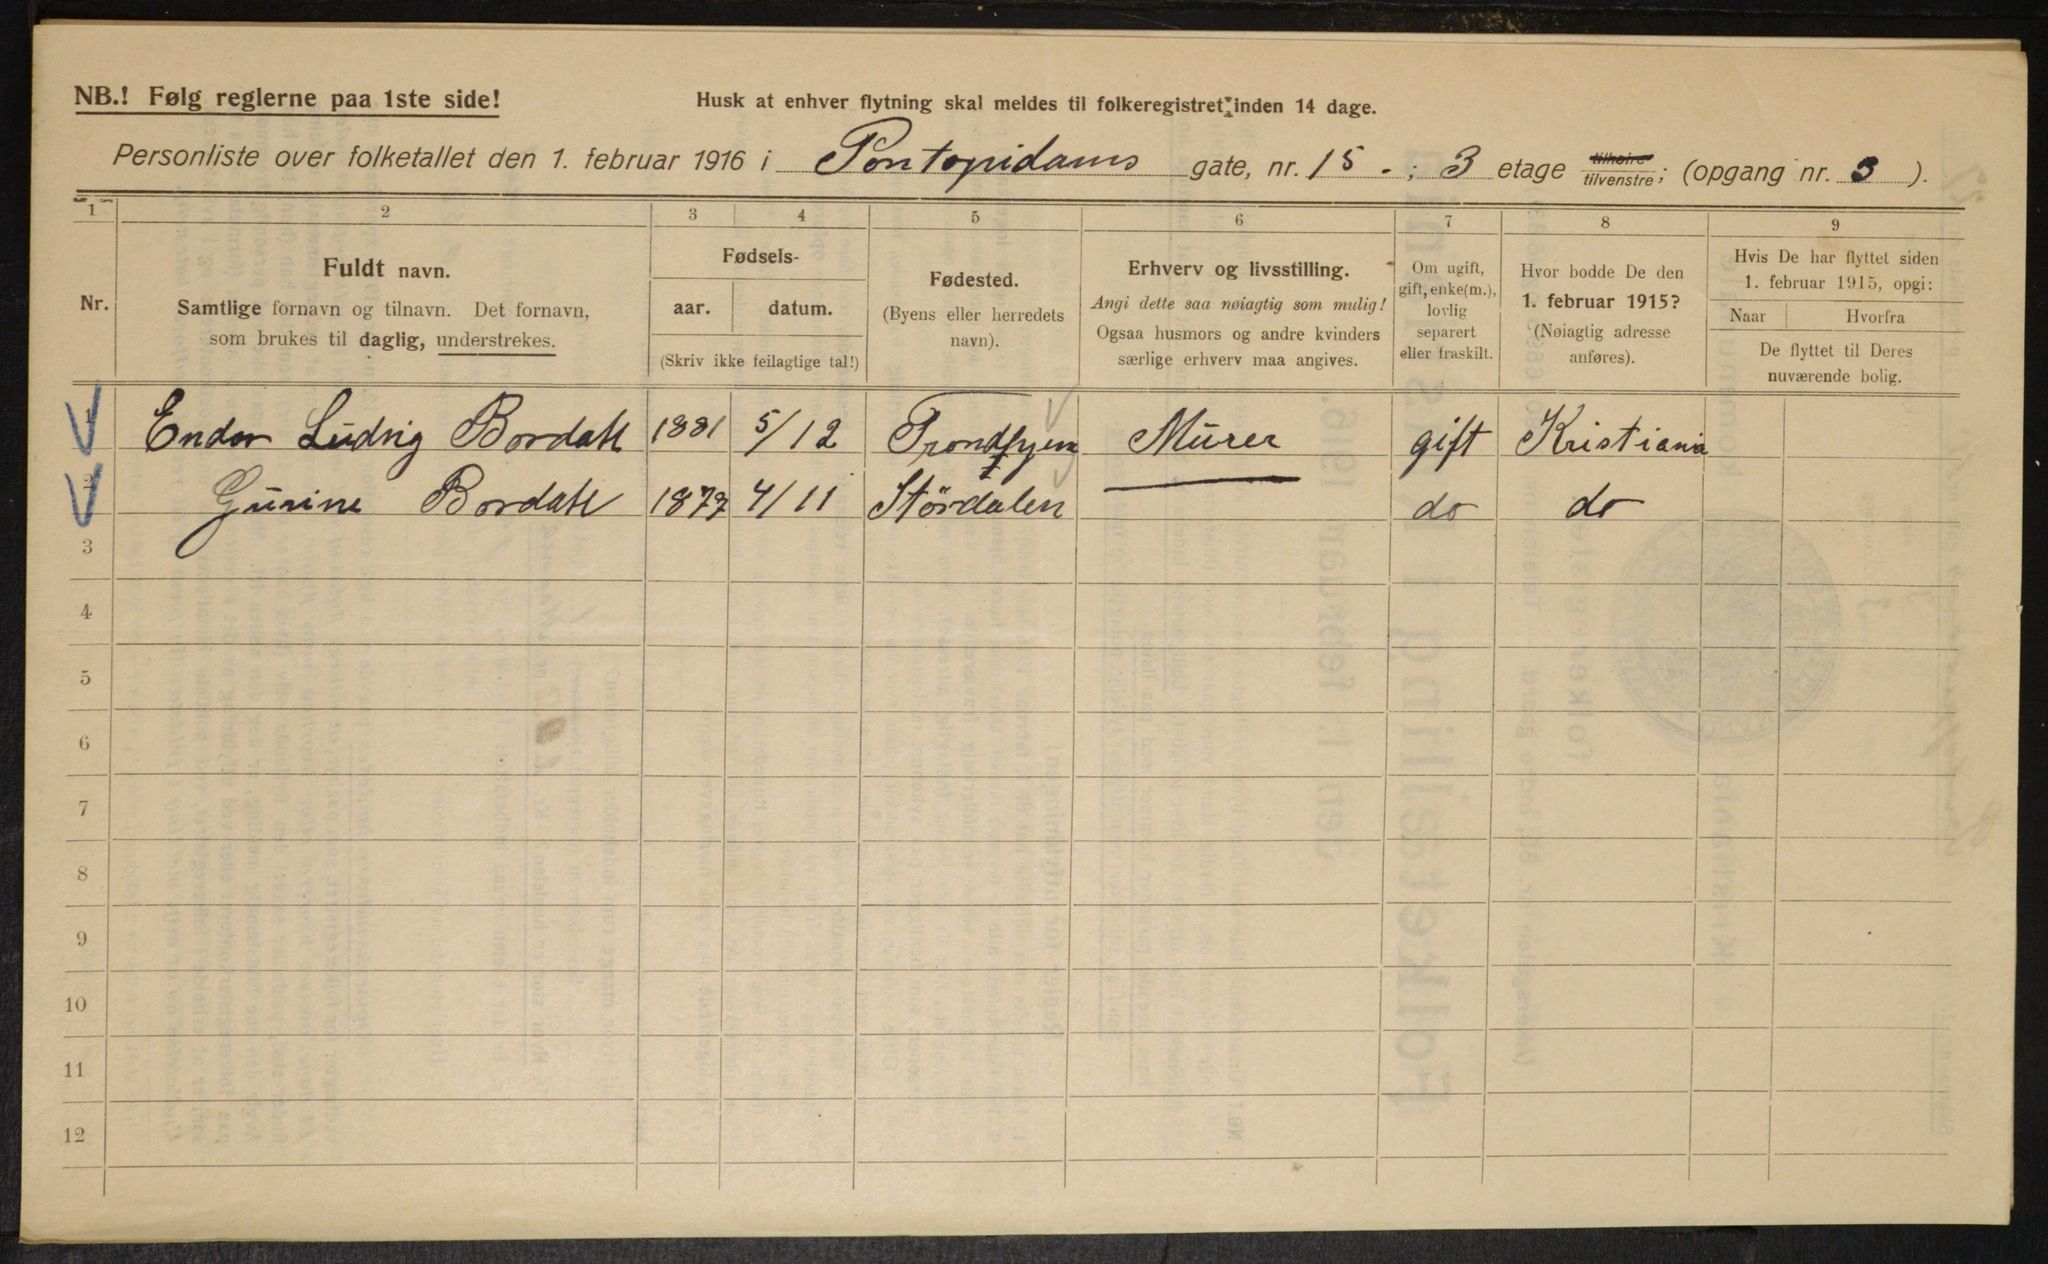 NB.! Følg reglerne paa 1ste side!
Husk at enhver flytning skal meldes til folkeregistret inden 14 dage.
Personliste over folketallet den 1. februar 1916 i Pontopidans gate, nr. 15 .; 3 etage tilhøire tilvenstre; (opgang nr. 3 ).
1 2 3 4 5 6 7 8 9
Nr.
Fuldt navn.
Samtlige fornavn og tilnavn. Det fornavn,
som brukes til daglig, understrekes.
Fødsels-
aar. datum.
(Skriv ikke feilagtige tal!)
Fødested.
(Byens eller herredets
navn).
Erhverv og livsstilling.
Angi dette saa nøiagtig som mulig!
Ogsaa husmors og andre kvinders
særlige erhverv maa angives.
Om ugift,
gift, enke(m.),
lovlig
separert
eller fraskilt.
Hvor bodde De den
1. februar 1915?
(Nøiagtig adresse
anføres).
Hvis De har flyttet siden
1. februar 1915, opgi:
Naar Hvorfra
De flyttet til Deres
nuværende bolig.
1 Ludvig 1881 5/12 Trondhjem Murer gift Kristiania
2 Gurine 1877 4/11 Størdalen do do
3
4
5
6
7
8
9
10
11
12